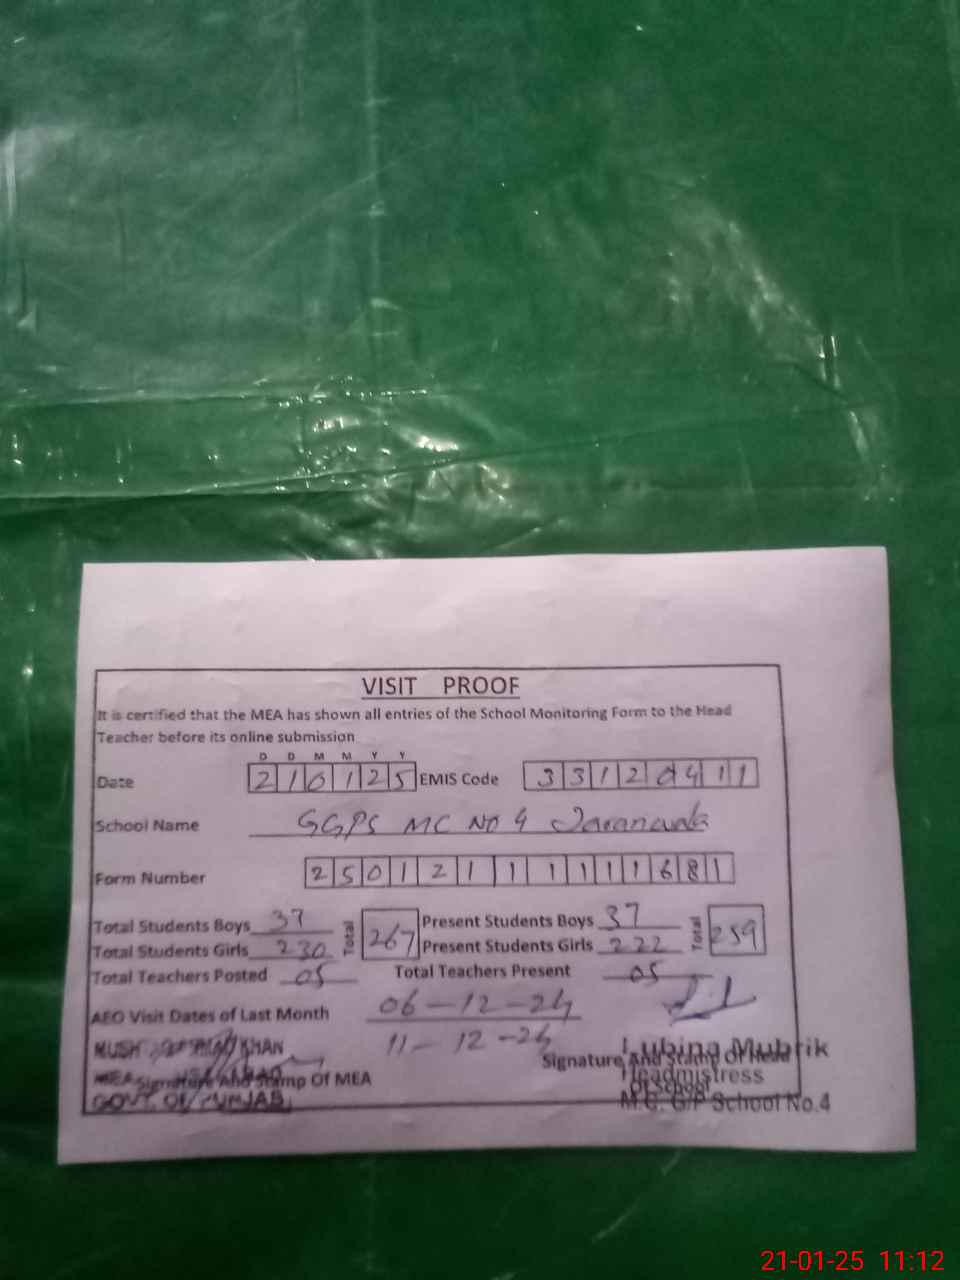 VISIT PROOF
It is certified that the MEA has shown all entries of the School Monitoring Form to the Head
Teacher before its online submission
D D M M Y Y
Date 210125 EMIS Code 33120411
School Name GGPS MC No 4 Jaranwala
Form Number 250121111111681
Total Students Boys 37 Total 267 Present Students Boys 37 Total 259
Total Students Girls 230 Present Students Girls 222
Total Teachers Posted 05 Total Teachers Present 05
AEO Visit Dates of Last Month 06-12-24
11-12-24
KHAN
MEA
Signature And Stamp Of MEA
GOVT. OF PUNJAB
Signature And Stamp Of Head
Of School
Lubina Mubrik
Headmistress
M.C. G/P School No.4
21-01-25 11:12